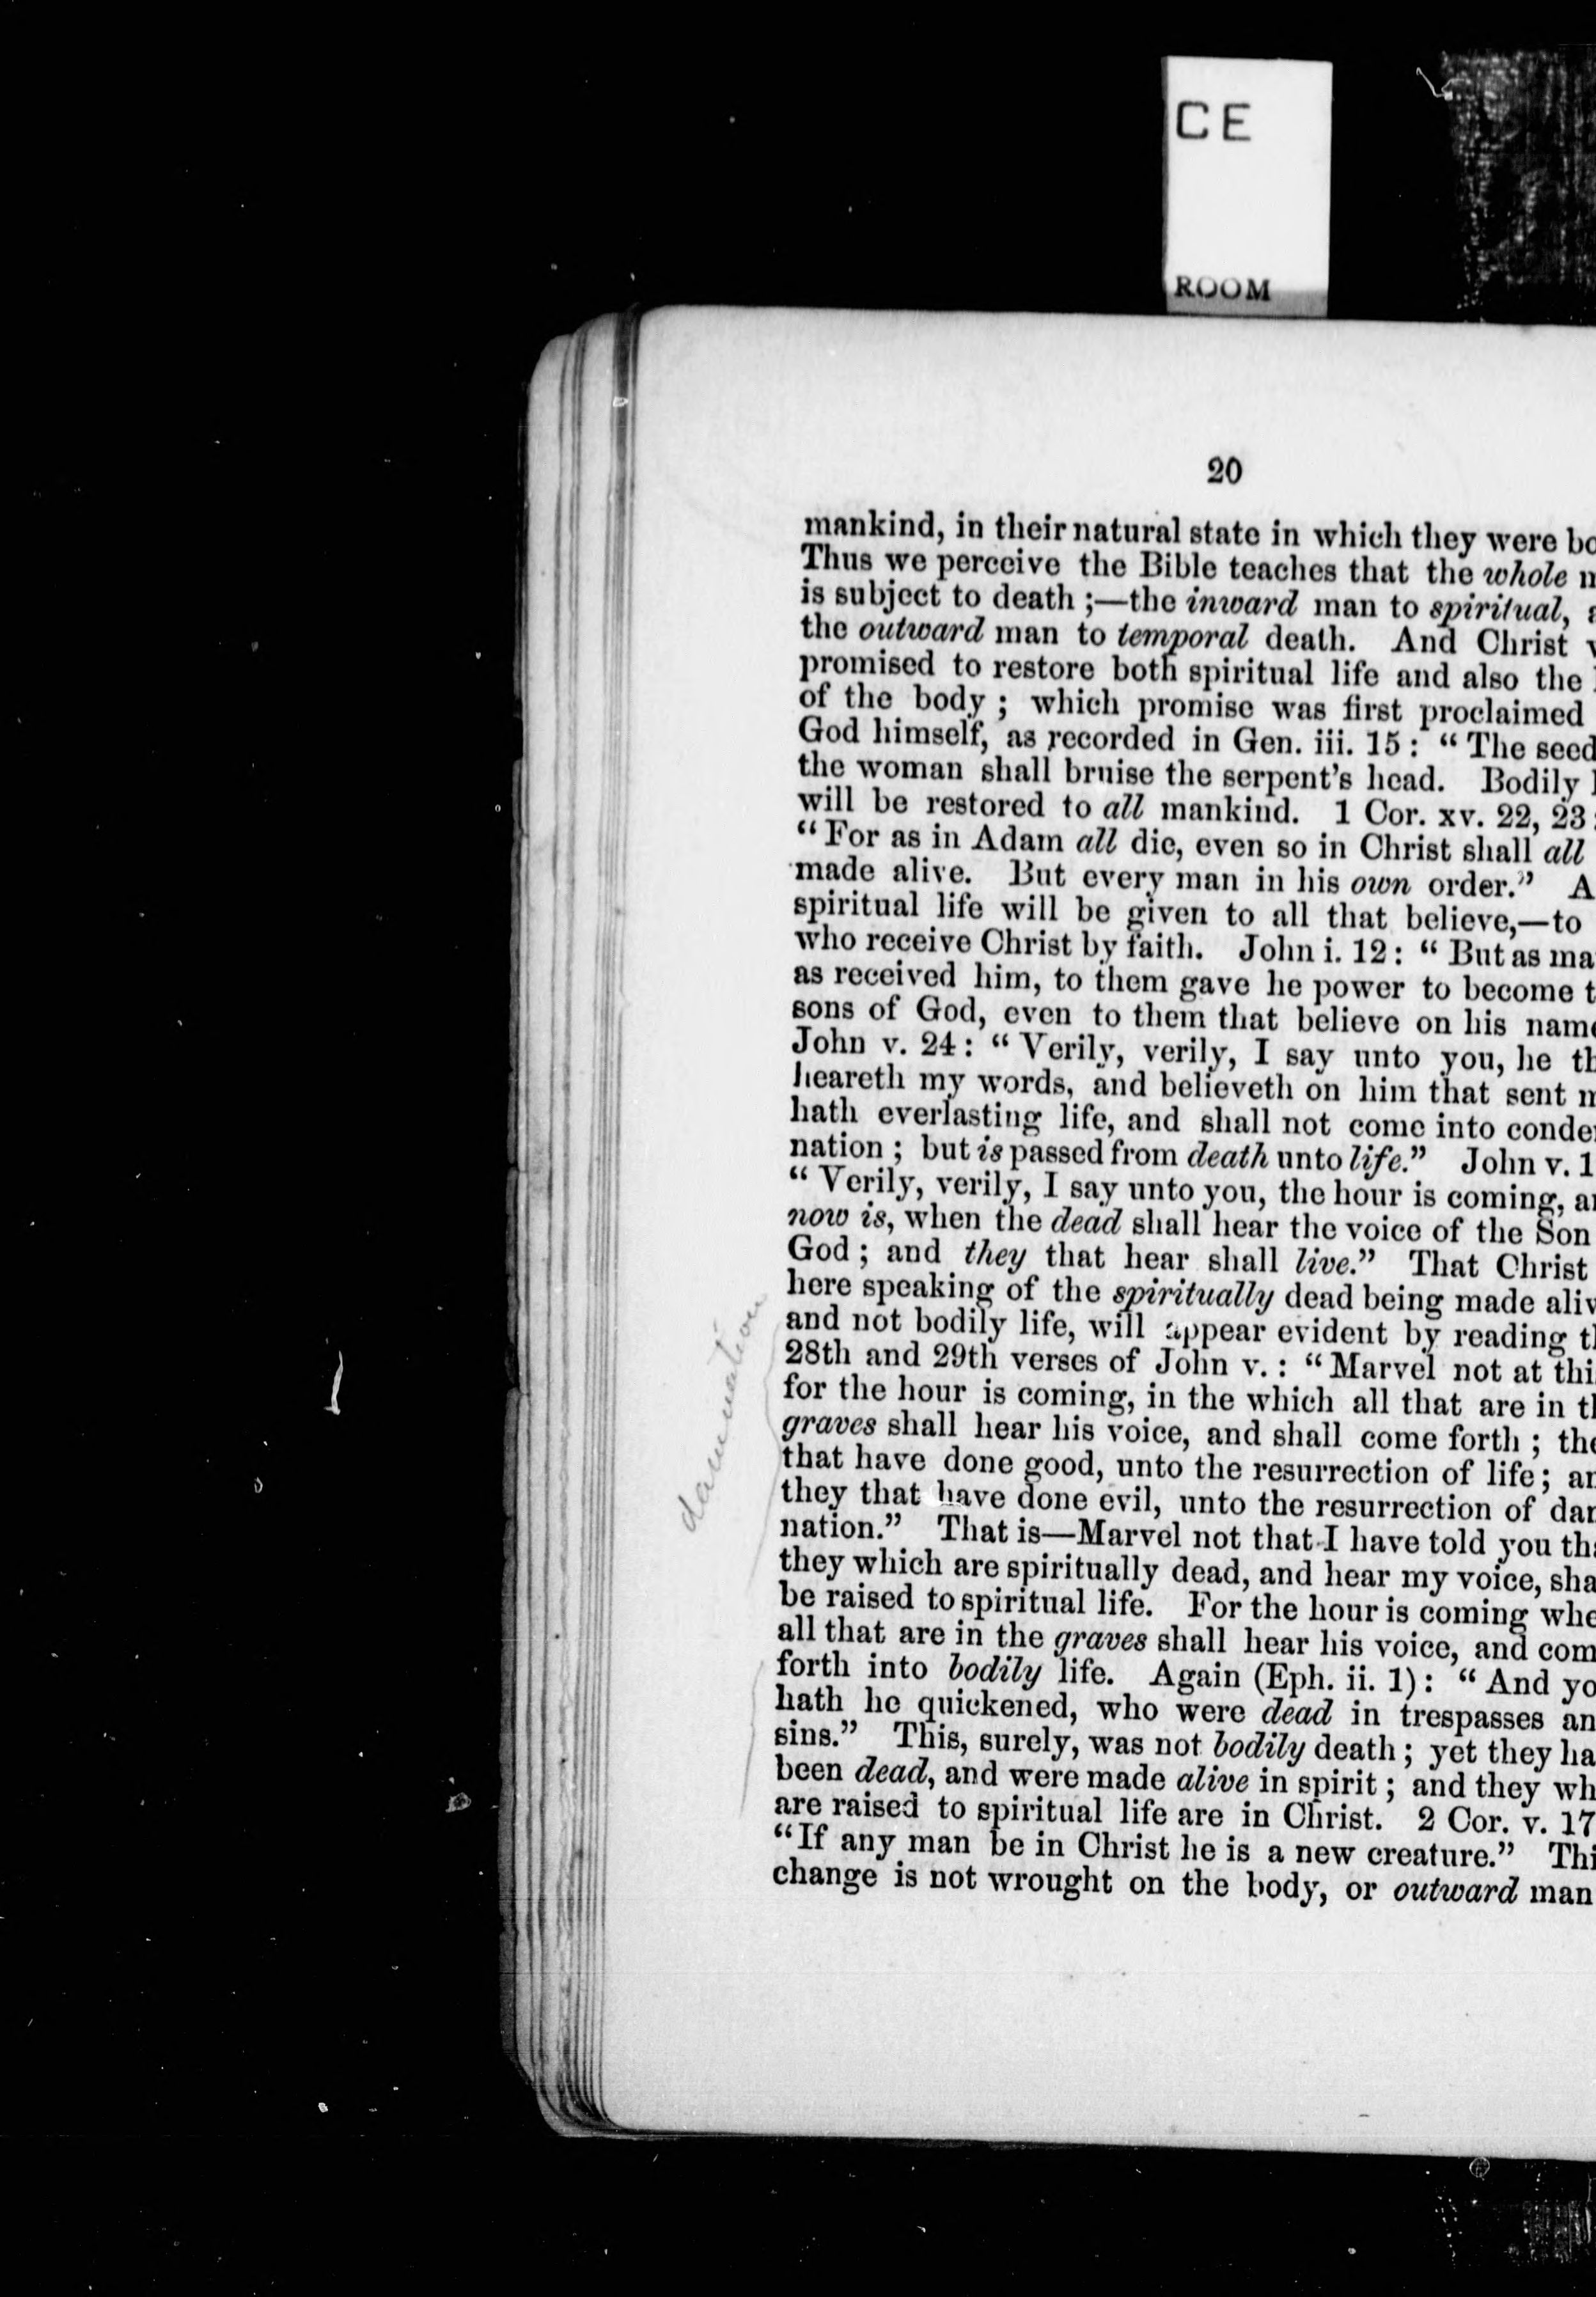 CE
ROOM
20
mankind, in their natural state in which they were bo
Thus we perceive the Bible teaches that the whole
is subject to death ;—the inward man to spiritual,
the outward man to temporal death. And Christ
promised to restore both spiritual life and also the
of the body ; which promise was first proclaimed
God himself, as recorded in Gen. iii. 15 : “ The seed
the woman shall bruise the serpent's head. Bodily
will be restored to all mankind. 1 Cor. xv. 22, 23 :
“ For as in Adam all die, even so in Christ shall all
made alive. But every man in his own order.” A
spiritual life will be given to all that believe,—to
who receive Christ by faith. John i. 12 : “ But as ma
as received him, to them gave he power to become t
sons of God, even to them that believe on his name
John v. 24 : “ Verily, verily, I say unto you, he th
heareth my words, and believeth on him that sent m
hath everlasting life, and shall not come into conde
nation ; but is passed from death unto life.” John v. 1
“ Verily, verily, I say unto you, the hour is coming, an
now is, when the dead shall hear the voice of the Son
God ; and they that hear shall live.” That Christ
here speaking of the spiritually dead being made aliv
and not bodily life, will appear evident by reading th
28th and 29th verses of John v. : “ Marvel not at thi
for the hour is coming, in the which all that are in th
graves shall hear his voice, and shall come forth ; the
that have done good, unto the resurrection of life ; an
they that have done evil, unto the resurrection of dam
nation.” That is—Marvel not that I have told you tha
they which are spiritually dead, and hear my voice, sha
be raised to spiritual life. For the hour is coming whe
all that are in the graves shall hear his voice, and com
forth into bodily life. Again (Eph. ii. 1) : “ And yo
hath he quickened, who were dead in trespasses an
sins.” This, surely, was not bodily death ; yet they ha
been dead, and were made alive in spirit ; and they wh
are raised to spiritual life are in Christ. 2 Cor. v. 17
“If any man be in Christ he is a new creature.” Thi
change is not wrought on the body, or outward man
damnation